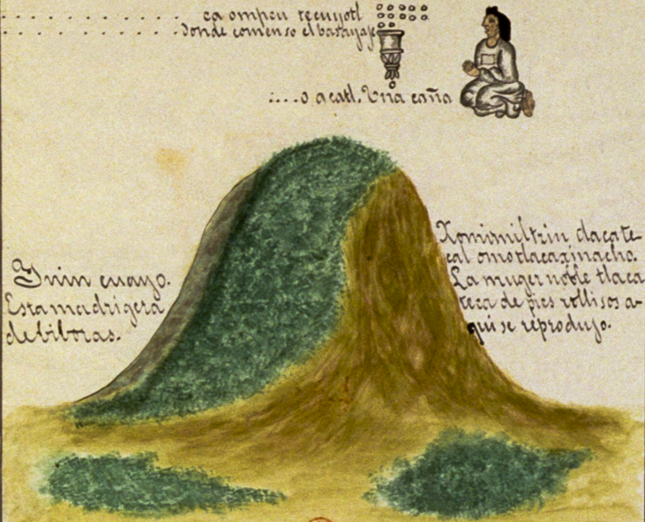 ca ompeu tecuyotl
Donde comenso el basayaje
....o acatl. Una caña
Ynin cuayo.
Esta madrigera
de biboras.
Xomimiltzin, tlacate-
cal omotlacaxinacho.
La muger noble tlaca
tera de pies rollisos a-
qui se reprodujo.